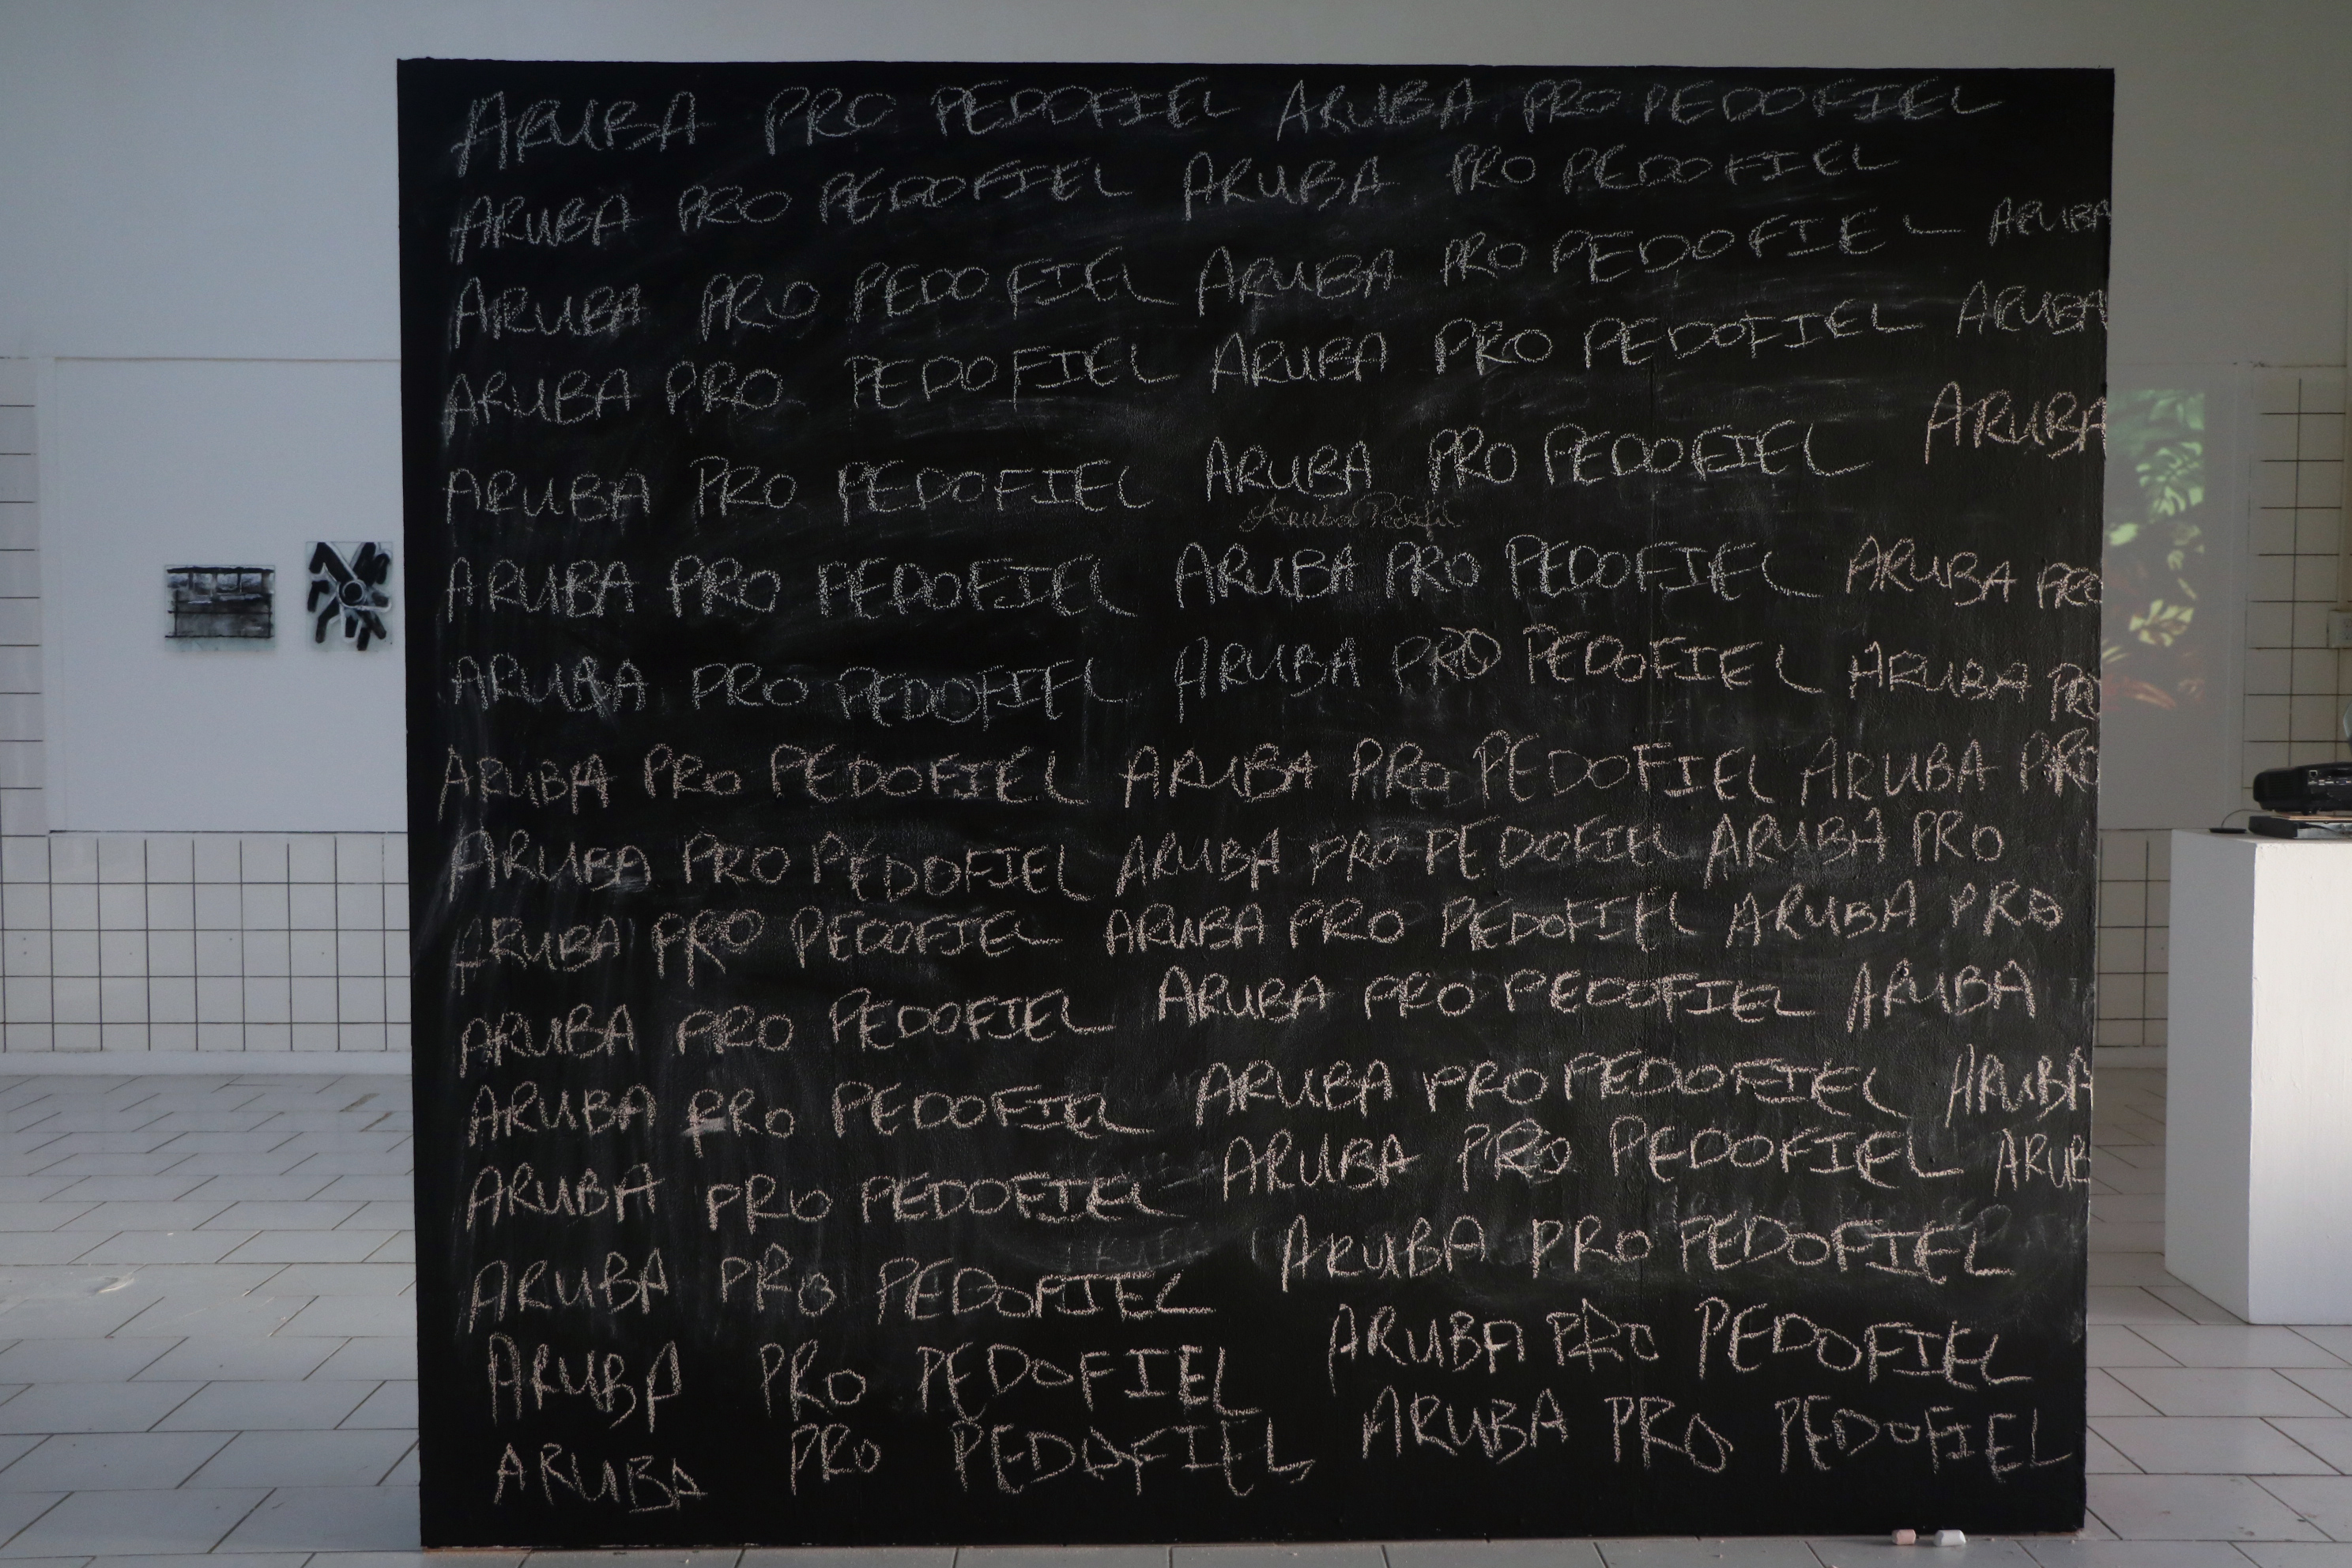 ARUBA PRO PEDOFIEL ARUBA PRO PEDOFIEL
ARUBA PRO PEDOFIEL ARUBA PRO PEDOFIEL
ARUBA PRO PEDOFIEL ARUBA PRO PEDOFIEL ARUBA
ARUBA PRO PEDOFIEL ARUBA PRO PEDOFIEL ARUBA
ARUBA PRO PEDOFIEL ARUBA PRO PEDOFIEL ARUBA
ARUBA PRO PEDOFIEL ARUBA PRO PEDOFIEL ARUBA PRO
ARUBA PRO PEDOFIEL ARUBA PRO PEDOFIEL ARUBA PRO
ARUBA PRO PEDOFIEL ARUBA PRO PEDOFIEL ARUBA PRO
ARUBA PRO PEDOFIEL ARUBA PRO PEDOFIEL ARUBA PRO
ARUBA PRO PEDOFIEL ARUBA PRO PEDOFIEL ARUBA PRO
ARUBA PRO PEDOFIEL ARUBA PRO PEDOFIEL ARUBA
ARUBA PRO PEDOFIEL ARUBA PRO PEDOFIEL ARUBA
ARUBA PRO PEDOFIEL ARUBA PRO PEDOFIEL ARUB
ARUBA PRO PEDOFIEL ARUBA PRO PEDOFIEL
ARUBA PRO PEDOFIEL ARUBA PRO PEDOFIEL
ARUBA PRO PEDOFIEL ARUBA PRO PEDOFIEL